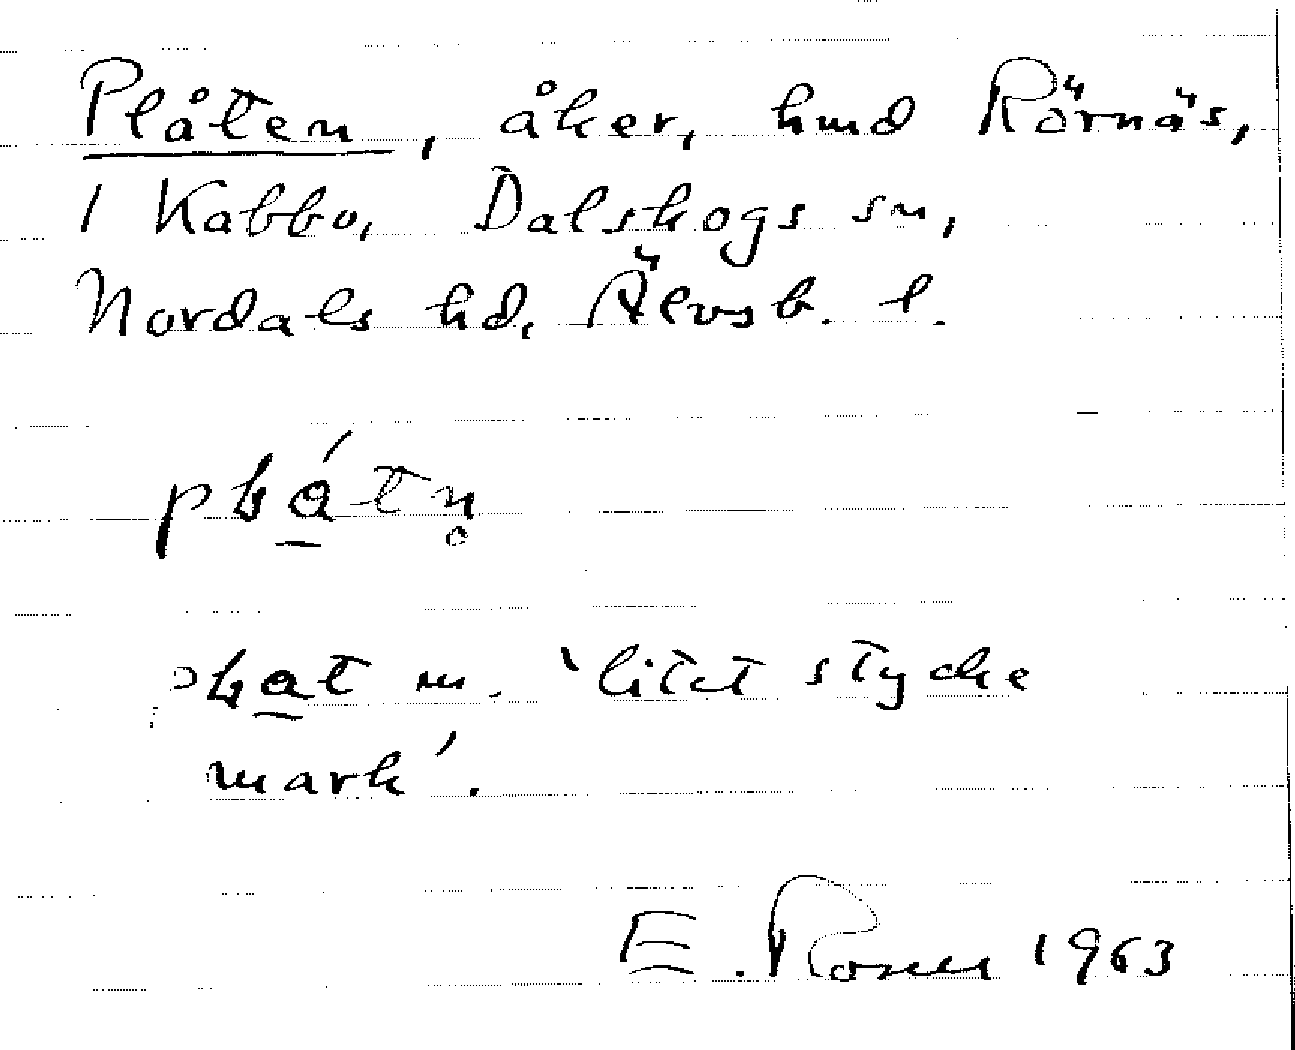 Plåten, åker, hmd Rörnäs,
1 Kabbo, Dalskogs sn,
Nordals hd, Älvsb. l.
m. 'litet stycke
mark'.
E. Rosell 1963